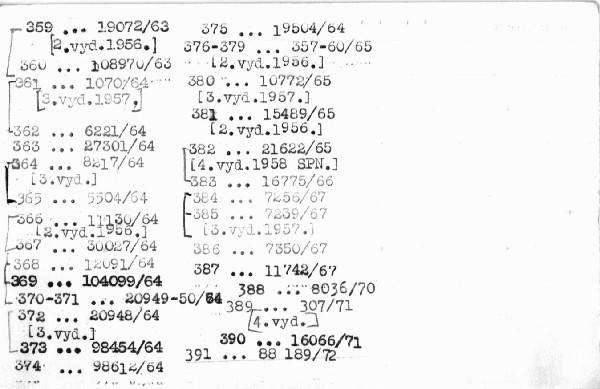 359 ... 19072/63
[2.vyd.1956.]
360 ... 108970/63
361 ... 1070/64
[3.vyd.1957.]
362 ... 6221/64
363 ... 27301/64
364 ... 8217/64
[3.vyd.]
365 ... 5504/64
366 ... 11130/64
[2.vyd.1956.]
367 ... 30027/64
368 ... 12091/64
369 ... 104099/64
370-371 ... 20949-50/64
372 ... 20948/64
[3.vyd.]
373 ... 98454/64
374 ... 98612/64
375 ... 19504/64
376-379 ... 357-60/65
[2.vyd.1956.]
380 ... 10772/65
[3.vyd.1957.]
381 ... 15489/65
[2.vyd.1956.]
382 ... 21622/65
[4.vyd.1958 SPN.]
383 ... 16775/66
384 ... 7256/67
385 ... 7239/67
[3.vyd.1957.]
386 ... 7350/67
387 ... 11742/67
388 ... 8036/70
389 ... 307/71
[4.vyd.]
390 ... 16066/71
391 ... 88 189/72